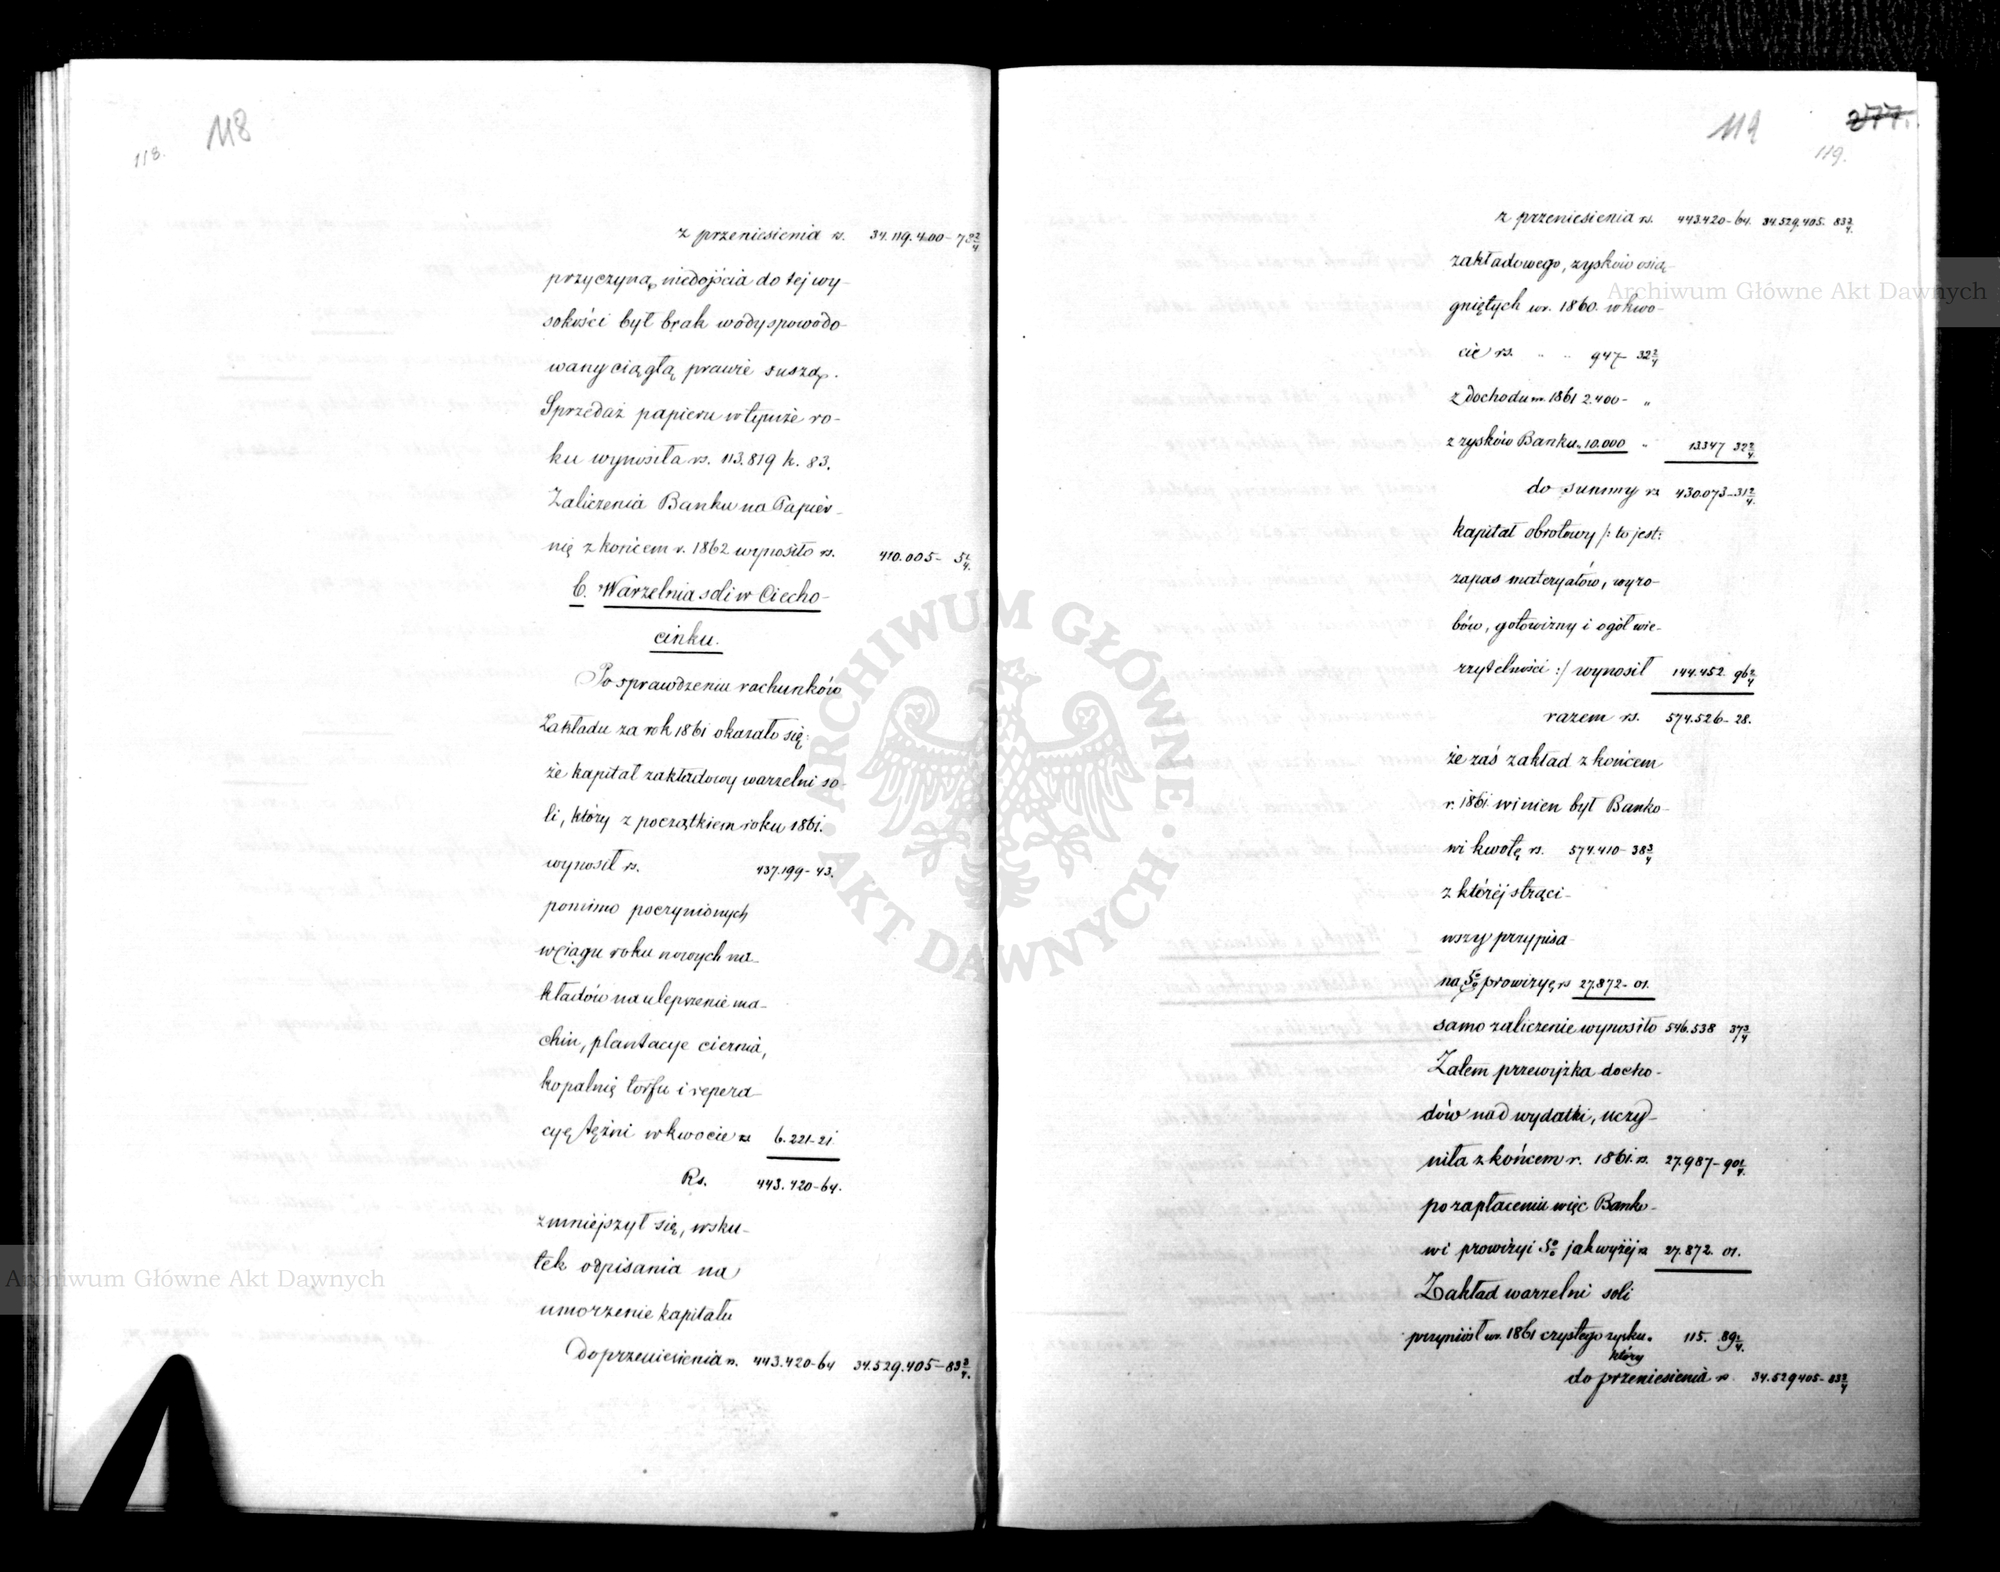 118
118.
z przeniesienia rs. 34.119.400 – 78 2/4
przyczyną niedojścia do tej wy-
sokości był brak wody spowodo-
wany ciągłą prawie suszą.
Sprzedaż papieru w tymże ro-
ku wynosiła rs. 113.819 k. 83.
Zaliczenia Banku na Papier-
nię z końcem r. 1862 wynosiło rs. 410.005 – 5 1/4.
C. Warzelnia soli w Ciecho-
cinku.
Po sprawdzeniu rachunków
Zakładu za rok 1861 okazało się:
że kapitał zakładowy warzelni so-
li, który z początkiem roku 1861.
wynosił rs. 437.199 – 43.
pomimo poczynionych
w ciągu roku nowych na-
kładów na ulepszenie ma-
chin, plantacye ciernia,
kopalnię torfu i repera-
cyę tężni w kwocie rs 6.221 – 21
Rs. 443.420 – 64.
zmniejszył się, wsku-
tek odpisania na
umorzenie kapitału
Do przeniesienia rs. 443.420 – 64 34.529.405 – 83 3/4.
119
277.
119.
z przeniesienia rs. 443.420 – 64. 34.529.405. 83 3/4.
zakładowego, zysków osią-
gniętych w r. 1860. w kwo-
cie rs. " " 947 – 32 3/4
z dochodu r. 1861 2.400 – "
z zysków Banku " 10.000 " 13347 32 3/4.
do summy rs 430.073 – 31 1/4.
kapitał obrotowy /: to jest:
zapas materyałów, wyro-
bów, gotowizny i ogół wie-
rzytelności :/ wynosił 144.452 96 3/4
razem rs. 574.526 – 28.
że zaś zakład z końcem
r. 1861 winien był Banko-
wi kwotę rs. 574.410 – 38 3/4
z której strąci-
wszy przypisa-
ną 5% prowizyę rs 27.872 – 01.
samo zaliczenie wynosiło 546.538 37 3/4
Zatem przewyżka docho-
dów nad wydatki, uczy-
niła z końcem r. 1861. rs. 27.987 – 90 1/4.
po zapłaceniu więc Banko-
wi prowizyi 5% jak wyżej rs 27.872. 01.
Zakład warzelni soli
przyniósł w r. 1861 czystego zysku " 115. 89 1/4.
który
do przeniesienia rs 34.529.405 – 83 3/4
Archiwum Główne Akt Dawnych
Archiwum Główne Akt Dawnych
ARCHIWUM GŁÓWNE · AKT DAWNYCH ·